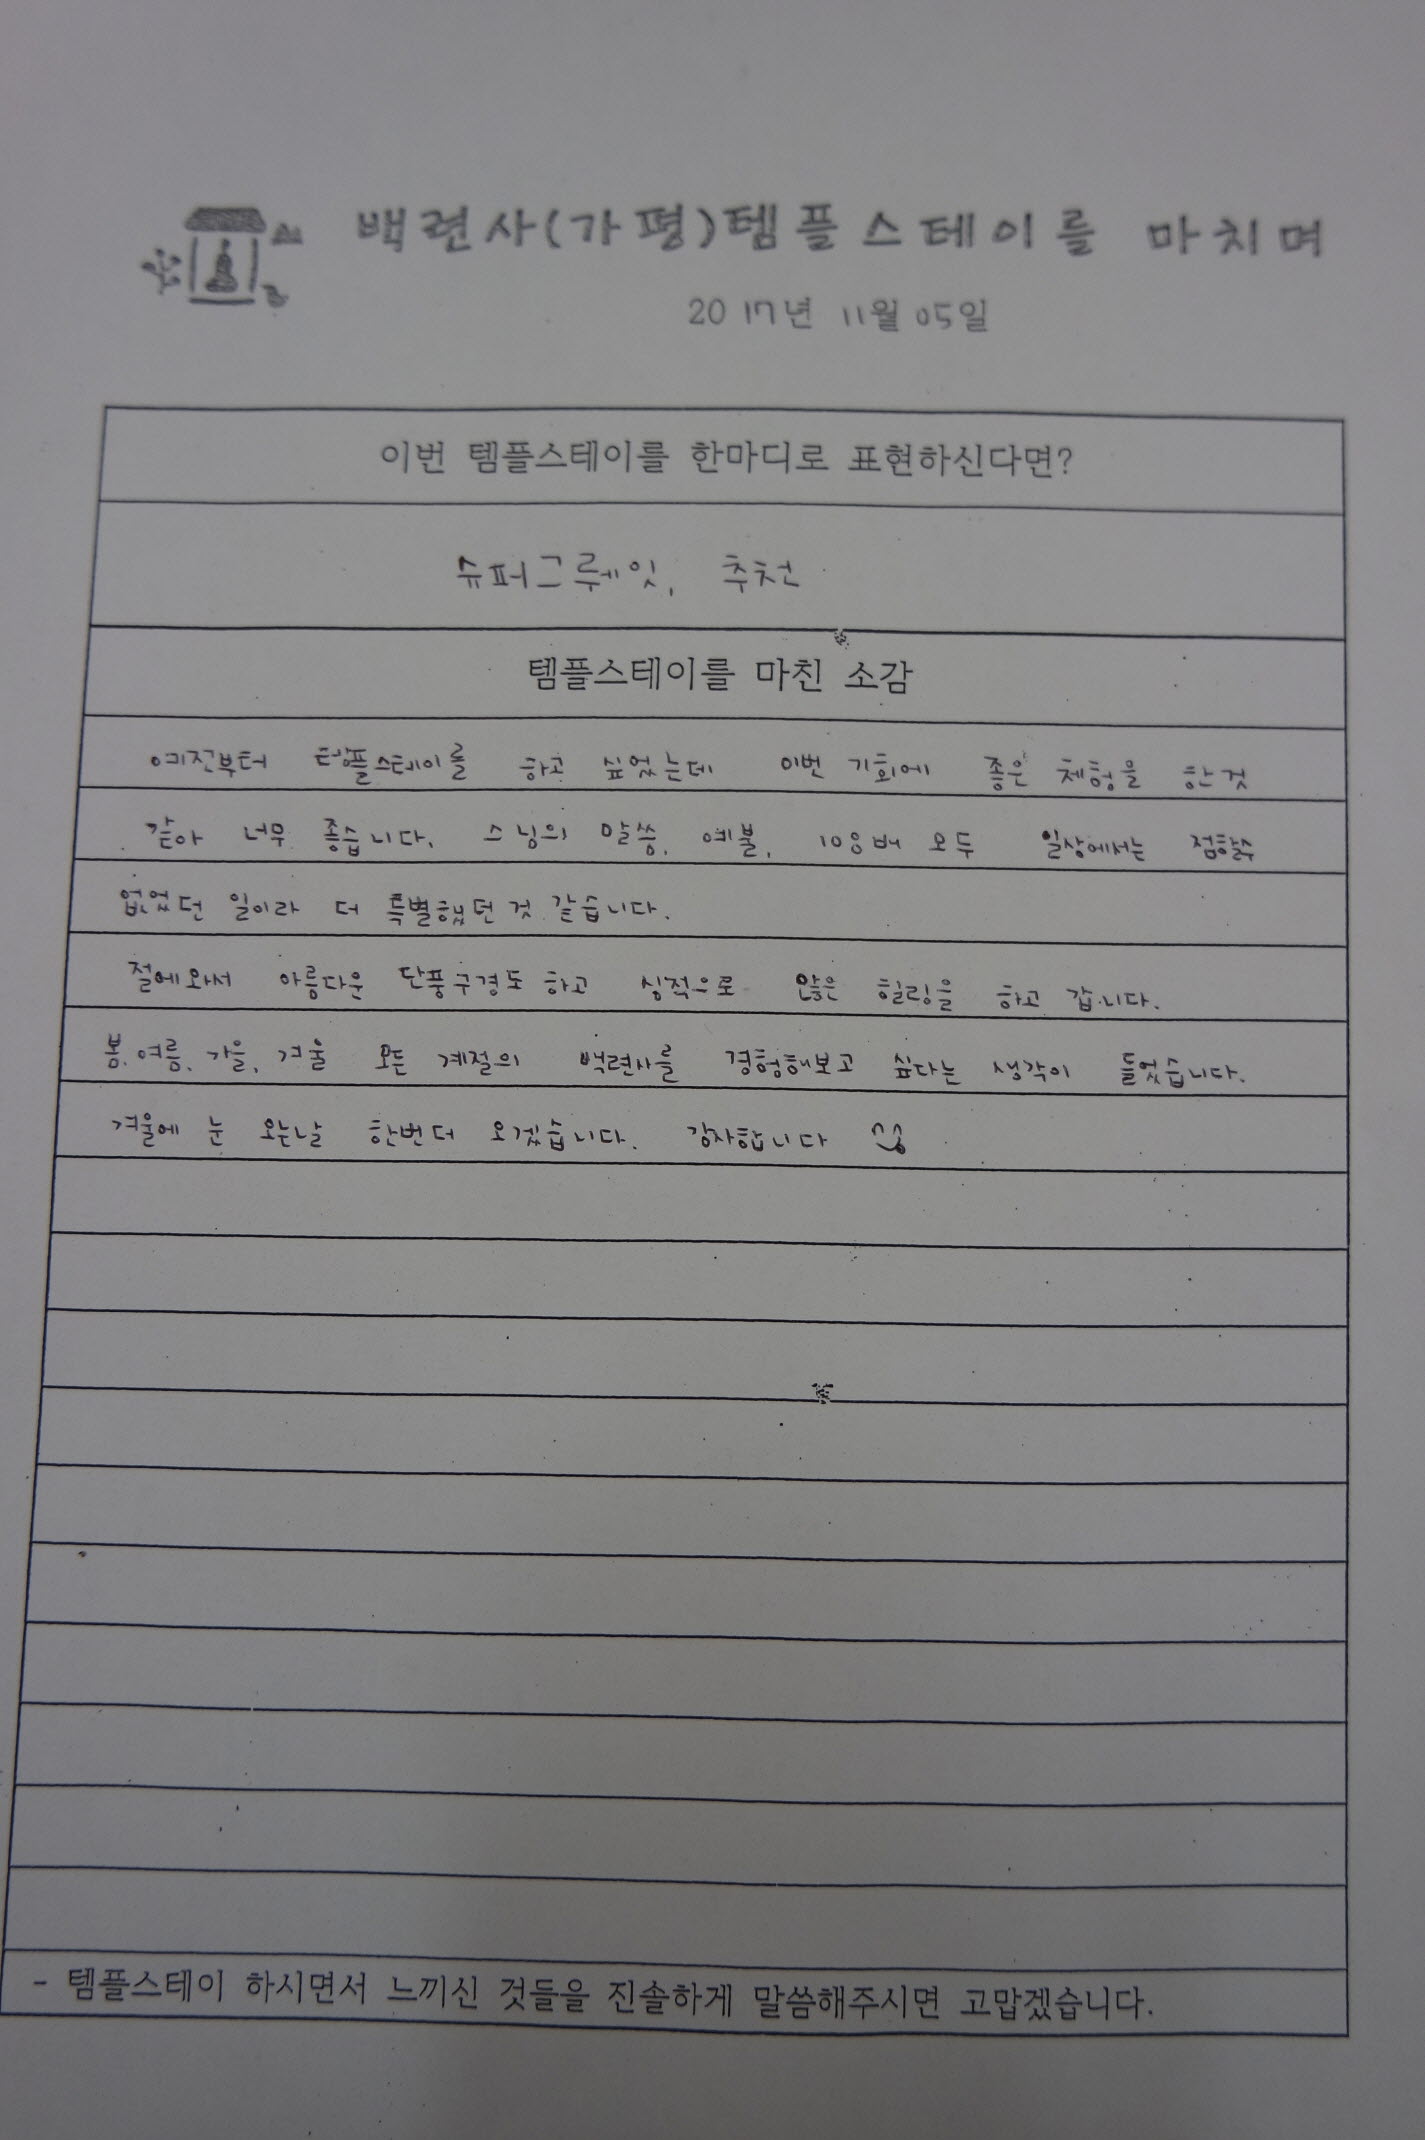 백련사(가평)템플스테이를 마치며
2017년 11월 05일
이번 템플스테이를 한마디로 표현하신다면?
슈퍼그뤠잇, 추천
템플스테이를 마친 소감
예전부터 템플스테이를 하고 싶었는데 이번 기회에 좋은 체험을 한것
같아 너무 좋습니다. 스님의 말씀, 예불, 108배 모두 일상에서는 접할수
없었던 일이라 더 특별했던것 같습니다.
절에와서 아름다운 단풍구경도 하고 심적으로 많은 힐링을 하고 갑니다.
봄, 여름, 가을, 겨울 모든 계절의 백련사를 경험해보고 싶다는 생각이 들었습니다.
겨울에 눈 오는날 한번더 오겠습니다. 감사합니다
- 템플스테이 하시면서 느끼신 것들을 진솔하게 말씀해주시면 고맙겠습니다.